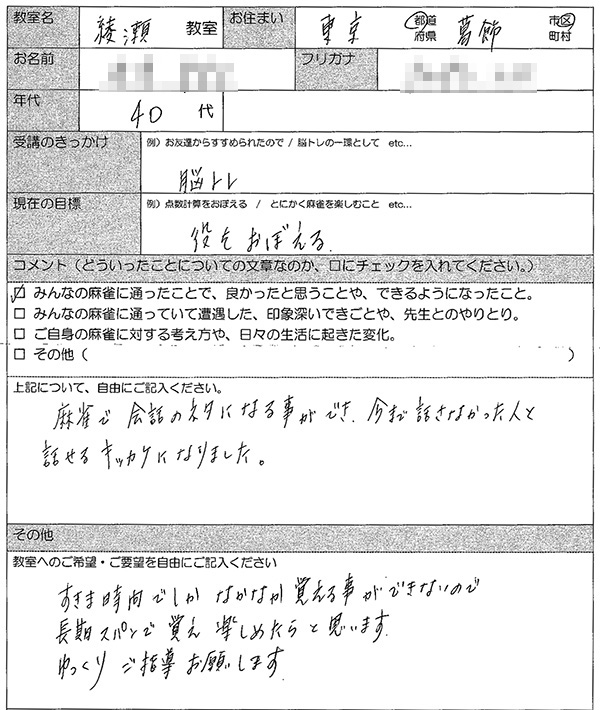 教室名 綾瀬 教室 お住まい 東京 都道府県 葛飾 市区町村
お名前 フリガナ
年代 40 代
受講のきっかけ 例）お友達からすすめられたので / 脳トレの一環として etc...
脳トレ
現在の目標 例）点数計算をおぼえる / とにかく麻雀を楽しむこと etc...
役をおぼえる.
コメント（どういったことについての文章なのか、口にチェックを入れてください。）
☑ みんなの麻雀に通ったことで、良かったと思うことや、できるようになったこと。
□ みんなの麻雀に通っていて遭遇した、印象深いできごとや、先生とのやりとり。
□ ご自身の麻雀に対する考え方や、日々の生活に起きた変化。
□ その他（ ）
上記について、自由にご記入ください。
麻雀で会話のネタになる事ができ、今まで話さなかった人と
話せるキッカケになりました。
その他
教室へのご希望・ご要望を自由にご記入ください
すきま時間でしかなかなか覚える事ができないので
長期スパンで覚え楽しめたらと思います.
ゆっくりご指導お願いします.